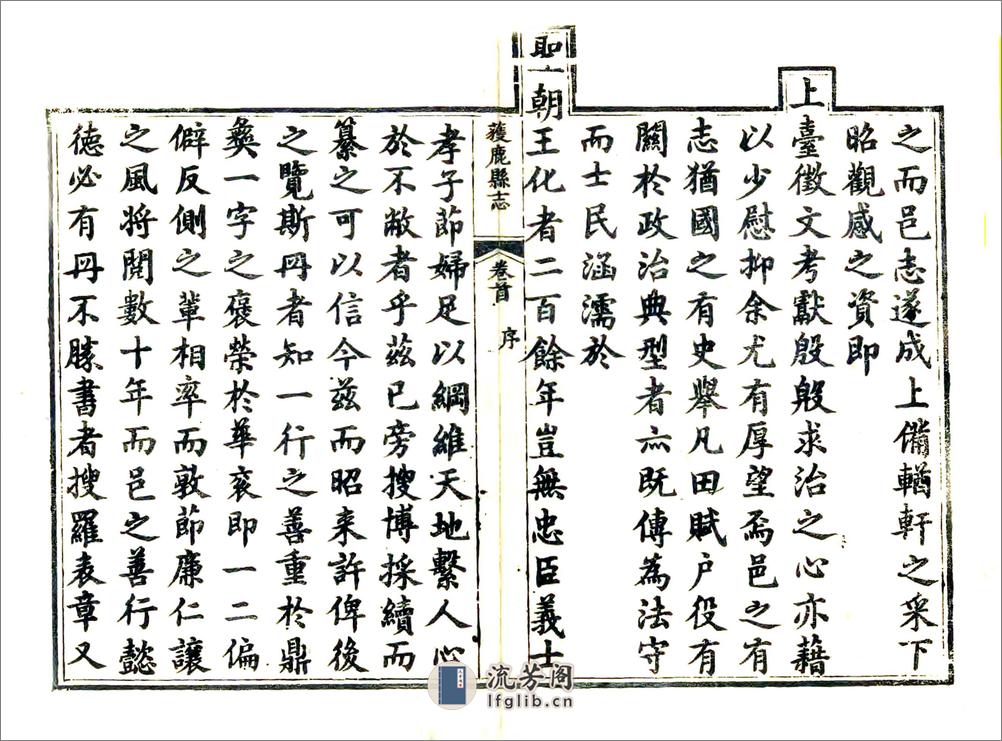 之而邑志遂成上備輶軒之采下
昭觀感之資即
上臺徵文考獻殷殷求治之心亦藉
以少慰抑余尤有厚望焉邑之有
志猶國之有史舉凡田賦户役有
關於政治典型者亦既傳為法守
而士民涵濡於
聖朝王化者二百餘年豈無忠臣義士
獲鹿縣志 卷首 序
孝子節婦足以綱維天地繫人心
於不敝者乎茲已旁搜博採續而
纂之可以信今茲而昭来許俾後
之覽斯冊者知一行之善重於鼎
彜一字之褒榮於華衮即一二偏
僻反側之輩相率而敦節廉仁讓
之風将閱數十年而邑之善行懿
德必有冊不勝書者搜羅表章又
流芳阁
lfglib.cn